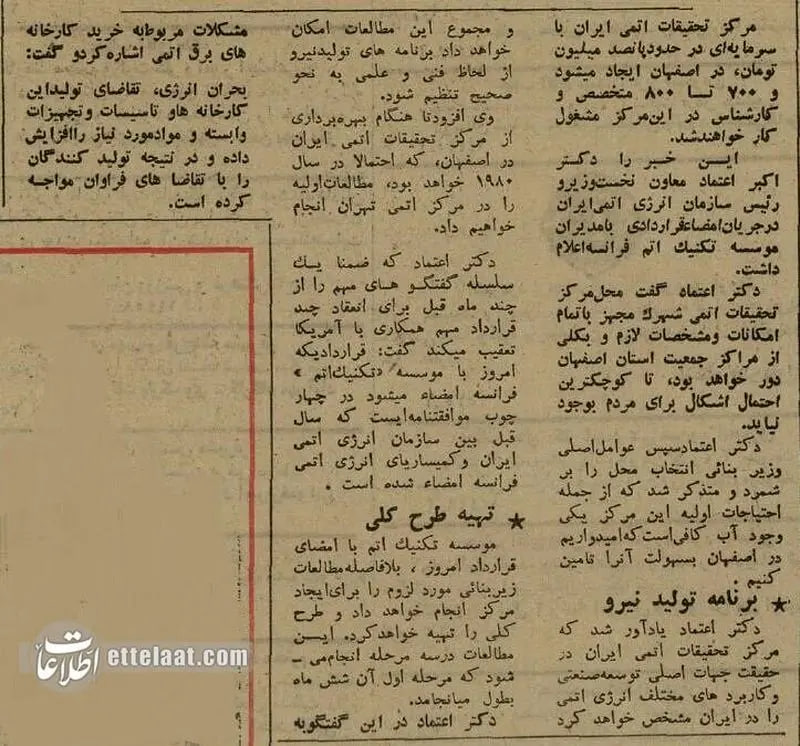 مرکز تحقیقات اتمی ایران با
سرمایه‌ای در حدود پانصد میلیون
تومان، در اصفهان ایجاد میشود
و ۷۰۰ تــا ۸۰۰ متخصص و
کارشناس در این مرکز مشغول
کار خواهند شد.
ایــن خبر را دکتر
اکبر اعتماد معاون نخست‌وزیر و
رئیس سازمان انرژی اتمی ایران
در جریان امضاء قراردادی با مدیران
موسسه تکنیك اتم فرانسه اعلام
داشت.
دکتر اعتماد گفت محل مرکز
تحقیقات اتمی شهرك مجهز با تمام
امکانات و مشخصات لازم و بکلی
از مراکز جمعیت استان اصفهان
دور خواهد بود، تا کوچکترین
احتمال اشکال برای مردم بوجود
نیاید.
دکتر اعتماد سپس عوامل اصلی
وزیر بنائی انتخاب محل را بر
شمرد و متذکر شد که از جمله
احتیاجات اولیه این مرکز یکی
وجود آب کافی است که امیدواریم
در اصفهان بسهولت آنرا تامین
کنیم .
★ برنامه تولید نیرو
دکتر اعتماد یادآور شد که
مرکز تحقیقات اتمی ایران در
حقیقت جهات اصلی توسعه صنعتی
و کاربرد های مختلف انرژی اتمی
را در ایران مشخص خواهد کرد
و مجموع این مطالعات امکان
خواهد داد برنامه های تولید نیرو
از لحاظ فنی و علمی به نحو
صحیح تنظیم شود.
وی افزود تا هنگام بهره‌برداری
از مرکز تحقیقات اتمی ایران
در اصفهان، که احتمالا در سال
۱۹۸۰ خواهد بود، مطالعات اولیه
را در مرکز اتمی تهران انجام
خواهیم داد.
دکتر اعتماد که ضمنا یــك
سلسله گفتگــو هــای مهم را از
چند ماه قبل برای انعقاد چند
قرارداد مهم همکاری با آمریکا
تعقیب میکند گفت: قراردادیکه
امروز با موسسه «تکنیك اتم »
فرانسه امضاء میشود در چهار
چوب موافقتنامه‌ایست که سال
قبل بین سازمان انرژی اتمی
ایران و کمیساریای انرژی اتمی
فرانسه امضاء شده است .
★ تهیه طرح کلی
موسسه تکنیك اتم با امضای
قرارداد امروز ، بلافاصله مطالعات
زیربنائی مورد لزوم را برای ایجاد
مرکز انجام خواهد داد و طرح
کلی را تهیه خواهد کرد. ایــن
مطالعات در سه مرحله انجام می ــ
شود که مرحله اول آن شش ماه
بطول میانجامد.
دکتر اعتماد در این گفتگو به
مشکلات مربوط به خرید کارخانه
های برق اتمی اشاره کرد و گفت:
بحران انرژی، تقاضای تولید این
کارخانه ها و تاسیسات و تجهیزات
وابسته و مواد مورد نیاز را افزایش
داده و در نتیجه تولید کنندگان
را با تقاضا های فراوان مواجه
کرده است.
اطلاعات ettelaat.com